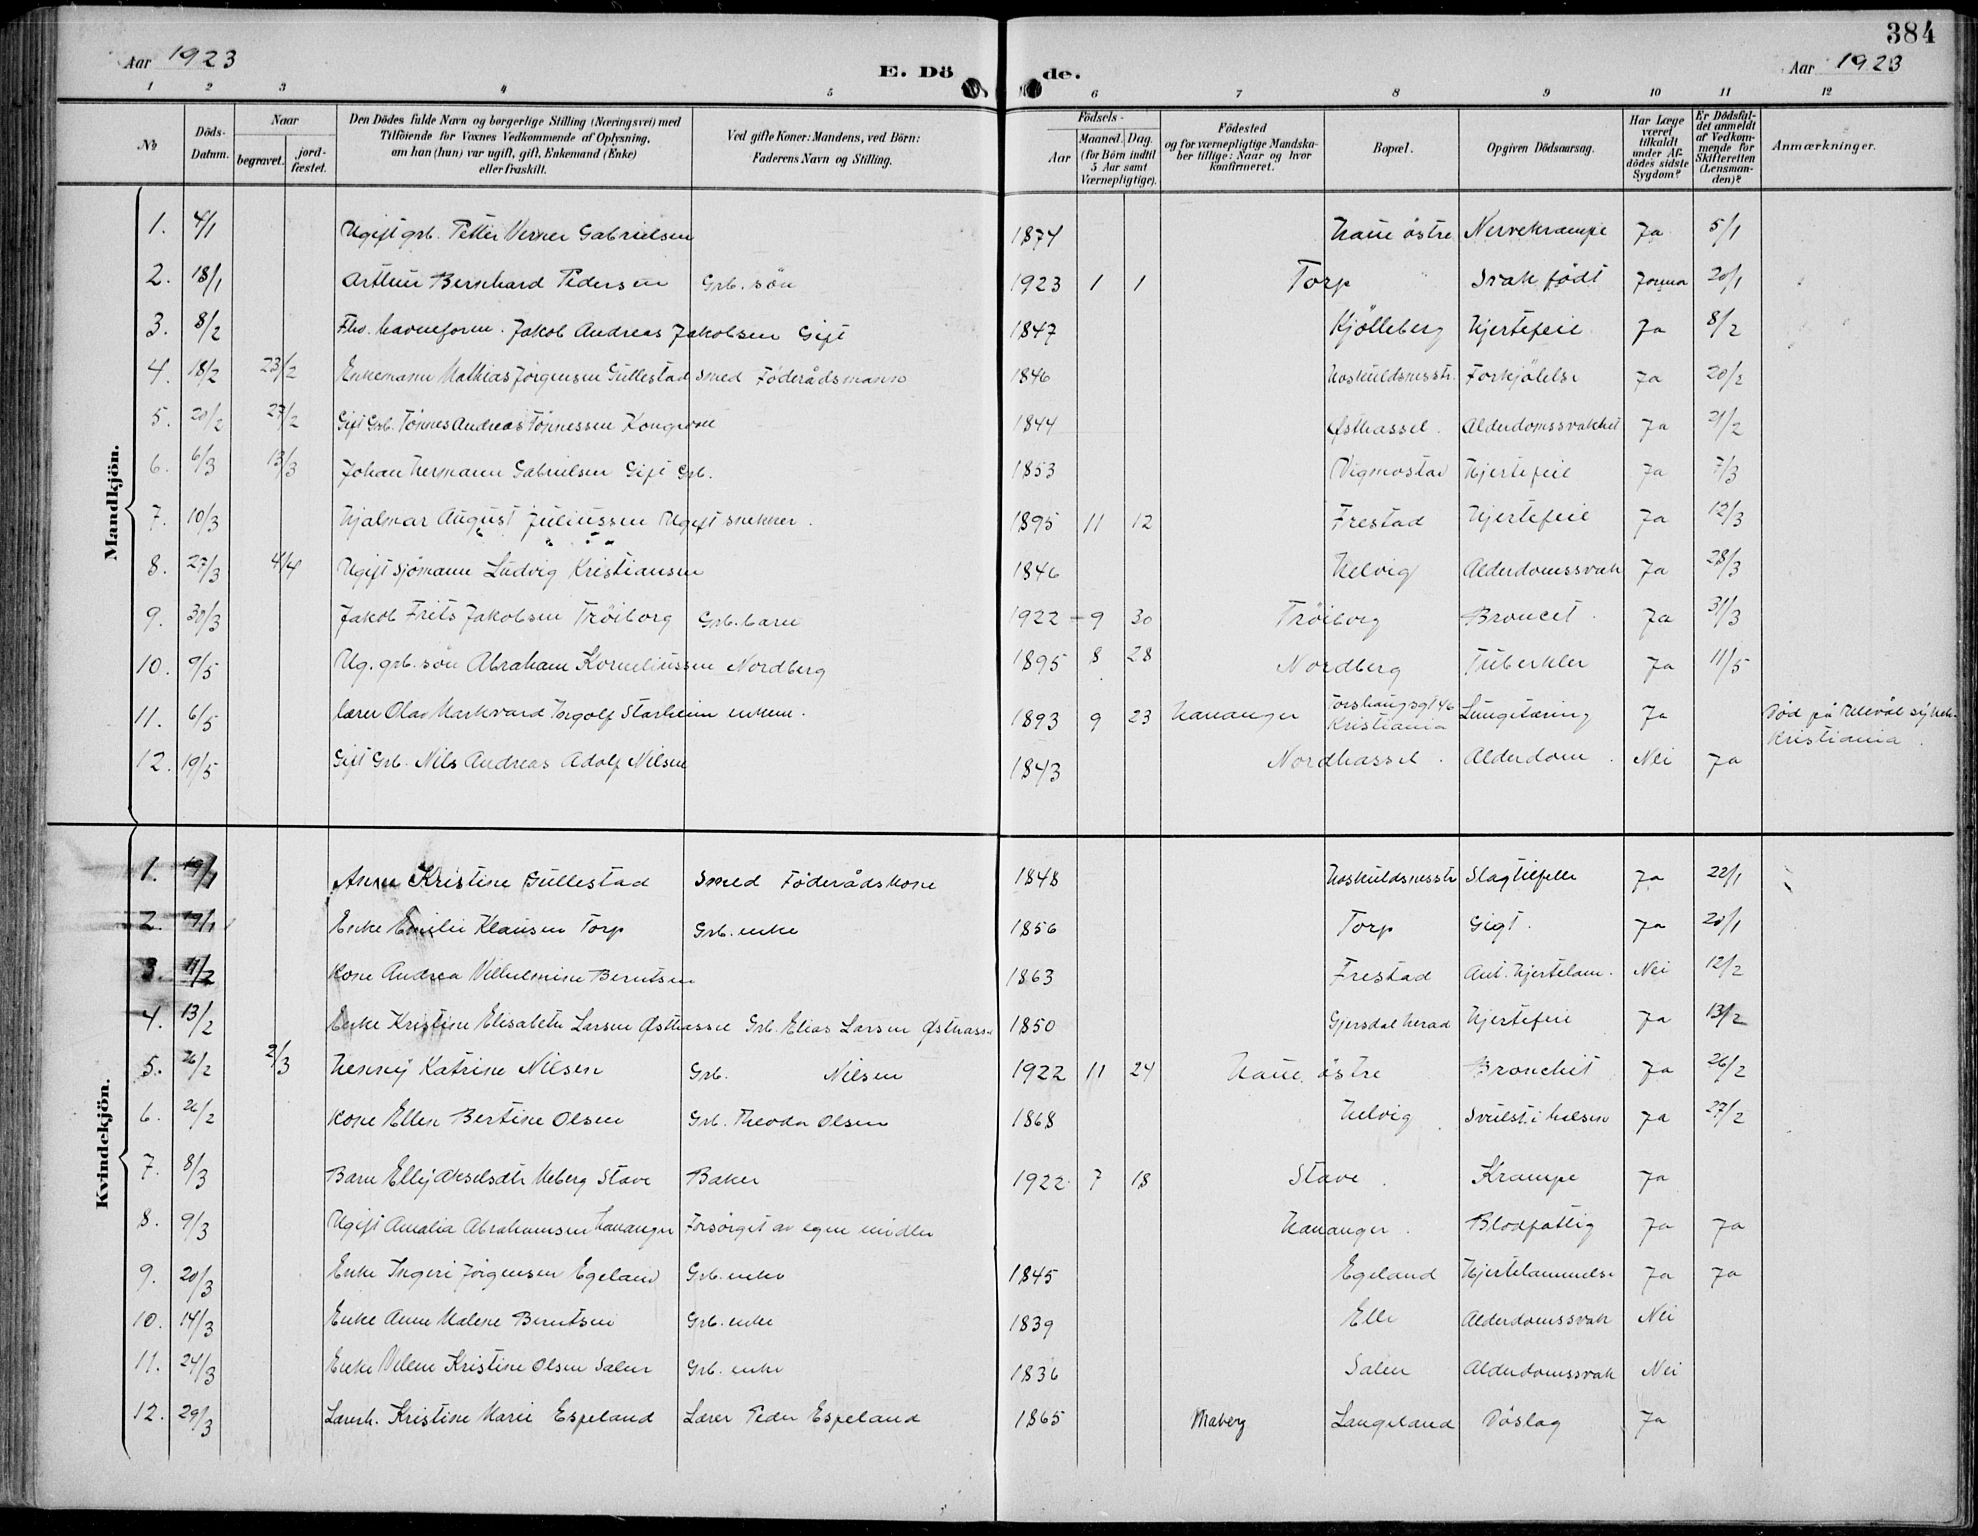 384
Aar 1923 E. Dö de. Aar 1923
1 2 3 4 5 6 7 8 9 10 11 12
No Döds-Datum. Naar begravet. jord-fæstet. Den Dödes fulde Navn og borgerlige Stilling (Næringsvei) med Tilföiende for Voxnes Vedkommende af Oplysning, om han (hun) var ugift, gift, Enkemand (Enke) eller fraskilt. Ved gifte Koner: Mandens, ved Börn: Faderens Navn og Stilling. Födsels- Aar Maaned. Dag. (for Börn indtil 5 Aar samt Værnepligtige). Födested og for værnepligtige Mandskaber tillige: Naar og hvor konfirmeret. Bopæl. Opgiven Dödsaarsag. Har Læge været tilkaldt under Afdödes sidste Sygdom? Er Dödsfaldet anmeldt af Vedkommende for Skifteretten (Lensmanden)? Anmærkninger.
Mandkjön.
1. 4/1 Ugift grb. Petter Verner Gabrielsen 1874 Haue östre Nervekrampe Ja 5/1
2. 18/1 Arthur Bernhard Pedersen Grb. sön 1923 1 1 Torp Svak födt Jormor 20/1
3. 8/2 Fhv. havneform. Jakob Andreas Jakobsen Gift 1847 Kjölleberg Hjertefeil Ja 8/2
4. 18/2 23/2 Enkemann Mathias Jørgensen Gullestad smed Föderådsmann 1846 Hoskuldsnesstr. Forkjölelse Ja 20/2
5. 20/2 27/2 Gift Grb. Tönnes Andreas Tönnessen Kongsvoll 1844 Østhassel. Alderdomssvakhet Ja 21/2
6. 6/3 13/3 Johan Hermann Gabrielsen Gift Grb. 1853 Vigmostad Hjertefeil Ja 7/3
7. 10/3 Hjalmar August Juliussen Ugift snekker. 1895 11 12 Frestad Hjertefeil Ja 12/3
8. 27/3 4/4 Ugift sjömann Ludvig Kristiansen 1846 Helvig Alderdomssvak Ja 28/3
9. 30/3 Jakob Frits Jakobsen Tröiborg Grb. barn 1922 9 30 Tröiborg Broncit. Ja 31/3
10. 9/5 Ug. grb. sön Abraham Korneliussen Nordberg 1895 8 28 Nordberg Tuberkler Ja 11/5
11. 6/5 lærer Olav Markvard Ingolf Starheim enkem. 1893 9 23 Hananger Torshaugsgt 46 Kristiania Lungetæring Ja Död på Ullevål sykeh. Kristiania.
12. 19/5 Gift Grb. Nils Andreas Adolf Nilsen 1843 Nordhassel. Alderdom. Nei Ja
Kvindekjön.
1. 19/1 Anne Kristine Gullestad Smed Föderådskone 1848 Hoskuldsnesstr Slagtilfelle Ja 22/1
2. 19/1 Enke Emilie Klausen Torp Grb. enke 1856 Torp Gigt. Ja 20/1
3. 11/2 Kone Andrea Vilhelmine Berntsen 1863 Frestad Ant. Hjertelam. Nei 12/2
4. 13/2 Enke Kristine Elisabeth Larsen Østhassel Grb. Elias Larsen Østhassel 1850 Gjersdal herad Hjertefeil Ja 13/2
5. 26/2 2/3 Henny Katrine Nilsen Grb. Nilsen 1922 11 24 Haue östre Bronchit. Ja 26/2
6. 26/2 Kone Ellen Bertine Olsen Grb. Theodor Olsen 1868 Helvig Svulst i halsen Ja 27/2
7. 8/3 Barn Elly Akselsdtr Meberg Stave Baker 1922 7 18 Stave. Krampe Ja
8. 9/3 Ugift Amalia Abrahamsen Hananger Forsörget av egne midler Hananger. Blodfattig Ja Ja
9. 20/3 Enke Ingeri Jörgensen Egeland Grb. enke 1845 Egeland Hjertelammelse Ja Ja
10. 14/3 Enke Anne Malene Berntsen Grb. enke 1839 Elle Alderdomssvak Nei
11. 24/3 Enke Velene Kristine Olsen Salen Grb. enke 1836 Salen Alderdomssvak Nei
12. 29/3 Lærerh. Kristine Marie Espeland Lærer Peder Espeland 1865 Maberg Langeland Döslag Ja